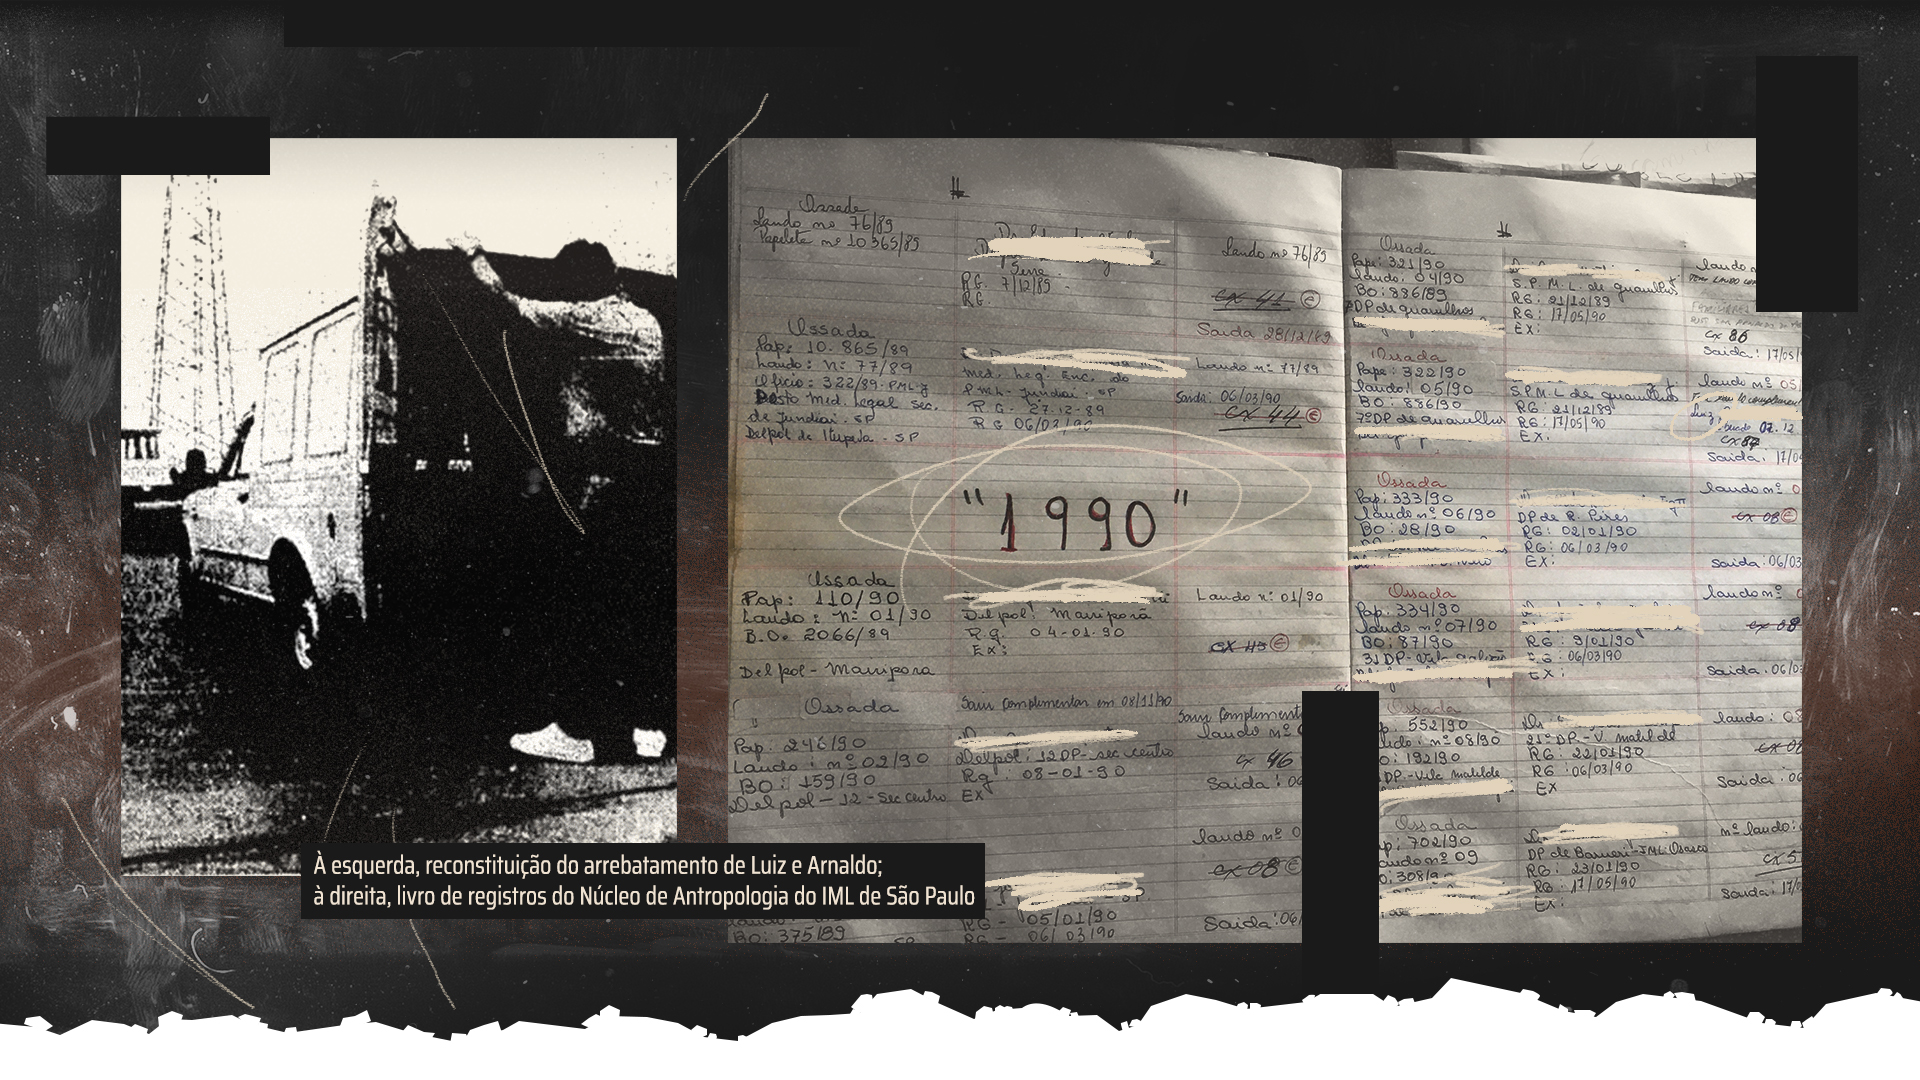 Ossada
Laudo nº 76/89
Papeleta nº 10365/89
Serra
RG. 7/12/89
RG.
Laudo nº 76/89
cx 41
Saida 28/12/89
Ossada
Pap: 10.865/89
Laudo: nº 77/89
Oficio: 322/89-PML-J
Posto Med. Legal sec.
de Jundiaí - SP
Delpol de Itupeva - SP
med. leg. Enc. do
PML- Jundiaí - SP
R.G. 27-12-89
RG 06/03/90
Laudo nº 77/89
Saida: 06/03/90
cx 44
"1990"
Ossada
Pap: 110/90
Laudo: nº 01/90
B.O. 2066/89
Delpol - Mariporã
Delpol: Mariporã
R.g. 04-01-90
Ex:
Laudo nº 01/90
Ossada
Pap: 246/90
Laudo: nº 02/90
BO: 159/90
Delpol - 12 - Sec centro
Saiu complementar em 08/11/90
Delpol: 12 DP - sec. centro
Rg : 08-01-90
EX
Saiu Complement
laudo nº 0
cx 46
Saida: 06
laudo nº 0
cx 08
BO: 375/89
RG - 05/01/90
RG - 06/03/90
Saida: 06/
Ossada
Pape: 321/90
laudo: 04/90
BO: 886/89
DP de guarulhos
S.P.M.L. de guarulhos
RG: 21/12/89
RG: 17/05/90
EX:
laudo n
cx 86
Saida: 17/05/
Ossada
Pape: 322/90
laudo: 05/90
BO: 886/90
7ºDP de guarulhos
S.P.M.L de guarulhos
RG: 21/12/89
RG: 17/05/90
EX.
laudo nº 05/
07.12
cx 87
Saida: 17/0
Ossada
Pap: 333/90
laudo nº 06/90
BO: 28/90
DP de R. Pires
RG: 02/01/90
RG: 06/03/90
EX:
laudo nº 0
cx 08
Saida: 06/03
Ossada
Pap: 334/90
laudo nº 07/90
BO: 87/90
31 DP-Vila
RG: 9/01/90
RG: 06/03/90
EX:
laudo nº 0
cx 08
Saida: 06/0
Ossada
p. 552/90
udo: nº 08/90
O: 192/90
DP.-Vila matilde
21º DP-V. matilde
RG: 22/01/90
RG: 06/03/90
EX
laudo: 08
Saida: 06
Ossada
p: 702/90
audo nº 09
O: 308/9
DP de Barueri-IML Osasco
RG: 23/01/90
RG: 17/05/90
EX:
nº laudo:
cx 5
Saida: 17/
À esquerda, reconstituição do arrebatamento de Luiz e Arnaldo;
à direita, livro de registros do Núcleo de Antropologia do IML de São Paulo